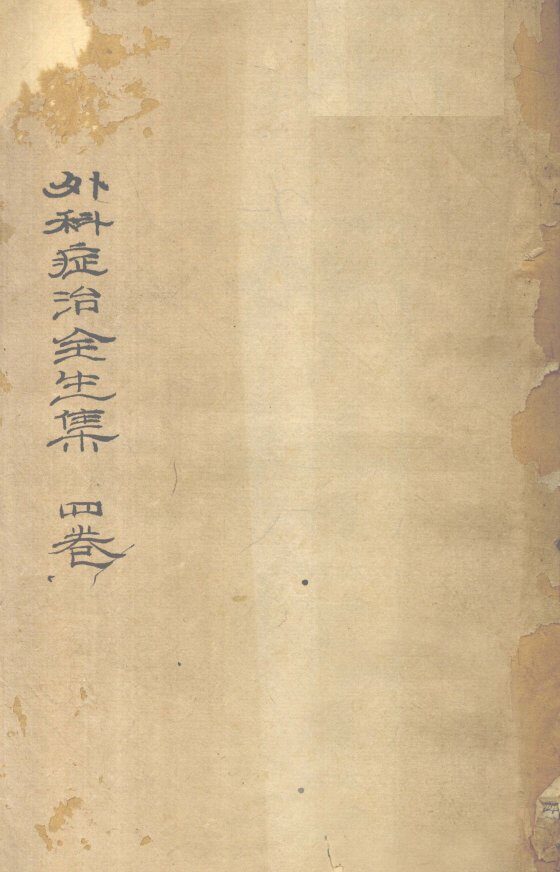 外科症治全生集 四卷